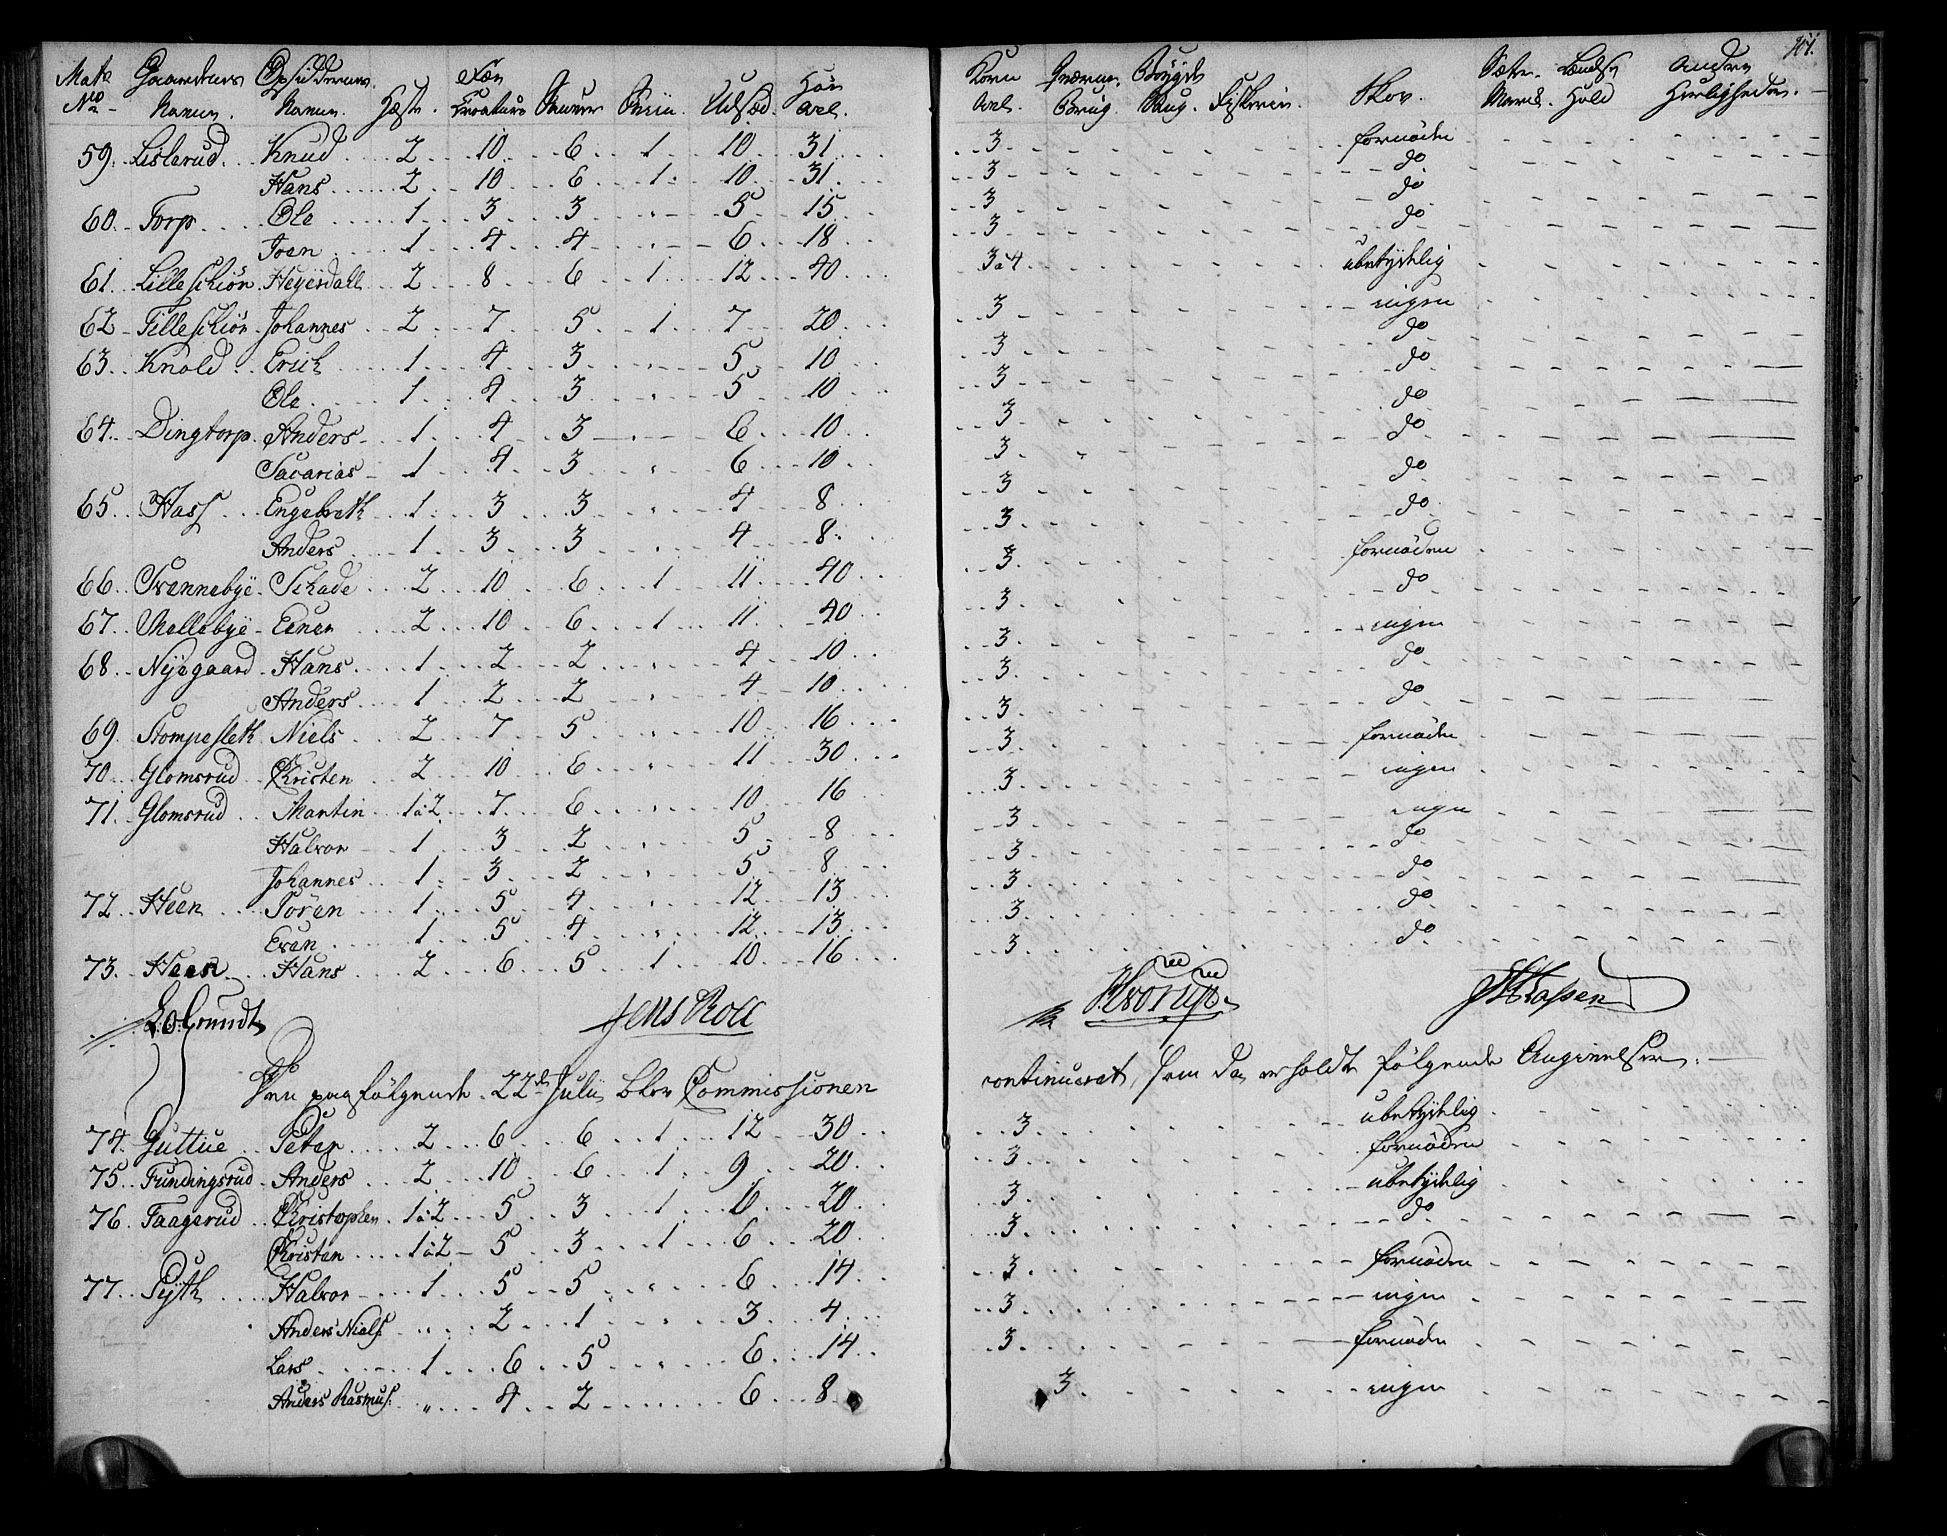 101.
Mat. No. Gaardens Navne. Opsiddernes Navne. Hæste. Fæe Creature Souver Sviin. Udsæd. Høe avl. Korn Avl. Qværne Brug. Bøygde Saug. Fiskerie. Skov. Sæter Havn. Lændse Hold Andre Herligheder.
59. Lislerud. Knud 2 10 6 1 10 31 3 fornøden
Hans 2 10 6 1 10 31 3 do
60. Torp Ole 1 3 3 " 5 15 3 do
Joen 1 4 4 " 6 18 3 do
61. Lille Schiøn Heyerdall 2 8 6 1 12 40 3a4 ubetydelig
62 Lille Schiøn Johannes 2 7 5 1 7 20 3 ingen
63. Knold Erich 1 4 3 " 5 10 3 do
Ole 1 4 3 " 5 10 3 do
64. Dingtorp Anders 1 4 3 " 6 10 3 do
Sacarias 1 4 3 " 6 10 3 do
65. Hass Engebreth 1 3 3 " 4 8 3 do
Anders 1 3 3 " 4 8 3 do
66. Svennebye Schade 2 10 6 1 11 40 3 fornøden
67. Mellebye Ener 2 10 6 1 11 40 3 do
68. Nyegaard Hans 1 2 2 " 4 10 3 ingen
Anders 1 2 2 " 4 10 3 do
69. Stompesleth Niels 2 7 5 10 16 3 do
70. Glomsrud Christen 2 10 6 " 11 30 3 fornøden
71. Glomsrud Martin 1a2 7 6 " 10 16 3 ingen
Halvor 1 3 2 " 5 8 3 ingen
Johannes 1 3 2 " 5 8 3 do
72. Heen Sören 1 5 4 " 12 13 3 do
Even 1 5 4 " 12 13 3 do
73. Heen Hans 2 6 5 1 10 16 3 do
L. O. Grundt Jens Roll
Den paafølgende 22de Julii blev Commissionen continueret, hvem da erholdt følgende Angivelser.
74. Guttue Peter 2 6 6 1 12 30 3 ubetydelig
75. Fundingsrud Anders 2 10 6 1 9 20 3 fornøden
76. Faagerud Christopher 1a2 5 3 1 6 20 3 ubetydelig
Christen 1a2 5 3 1 6 20 3 do
77. Syth Halvor 1 5 5 " 6 14 3 fornøden
Anders Niels " 2 1 " 3 4 3 ingen
Lars 1 6 5 " 6 14 3 fornøden
Anders Rasmus. " 4 2 6 8 3 ingen